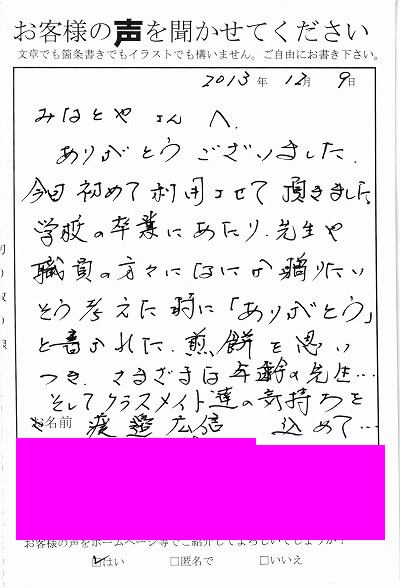 お客様の声を聞かせてください
文章でも箇条書きでもイラストでも構いません。ご自由にお書き下さい。
2013年 12月 9日
みなとや さん へ.
ありがとうございました.
今回初めて利用させて頂きました
学校の卒業にあたり.先生や
職員の方々になにか贈りたい
そう考えた時に「ありがとう」
と書かれた.煎餅を思い
つき.さまざまな年齢の先生…
そしてクラスメイト達の気持ちを
お名前 渡邉広信 込めて…
お客様の声をホームページ等でご紹介してよろしいでしょうか?
☑はい □匿名で □いいえ